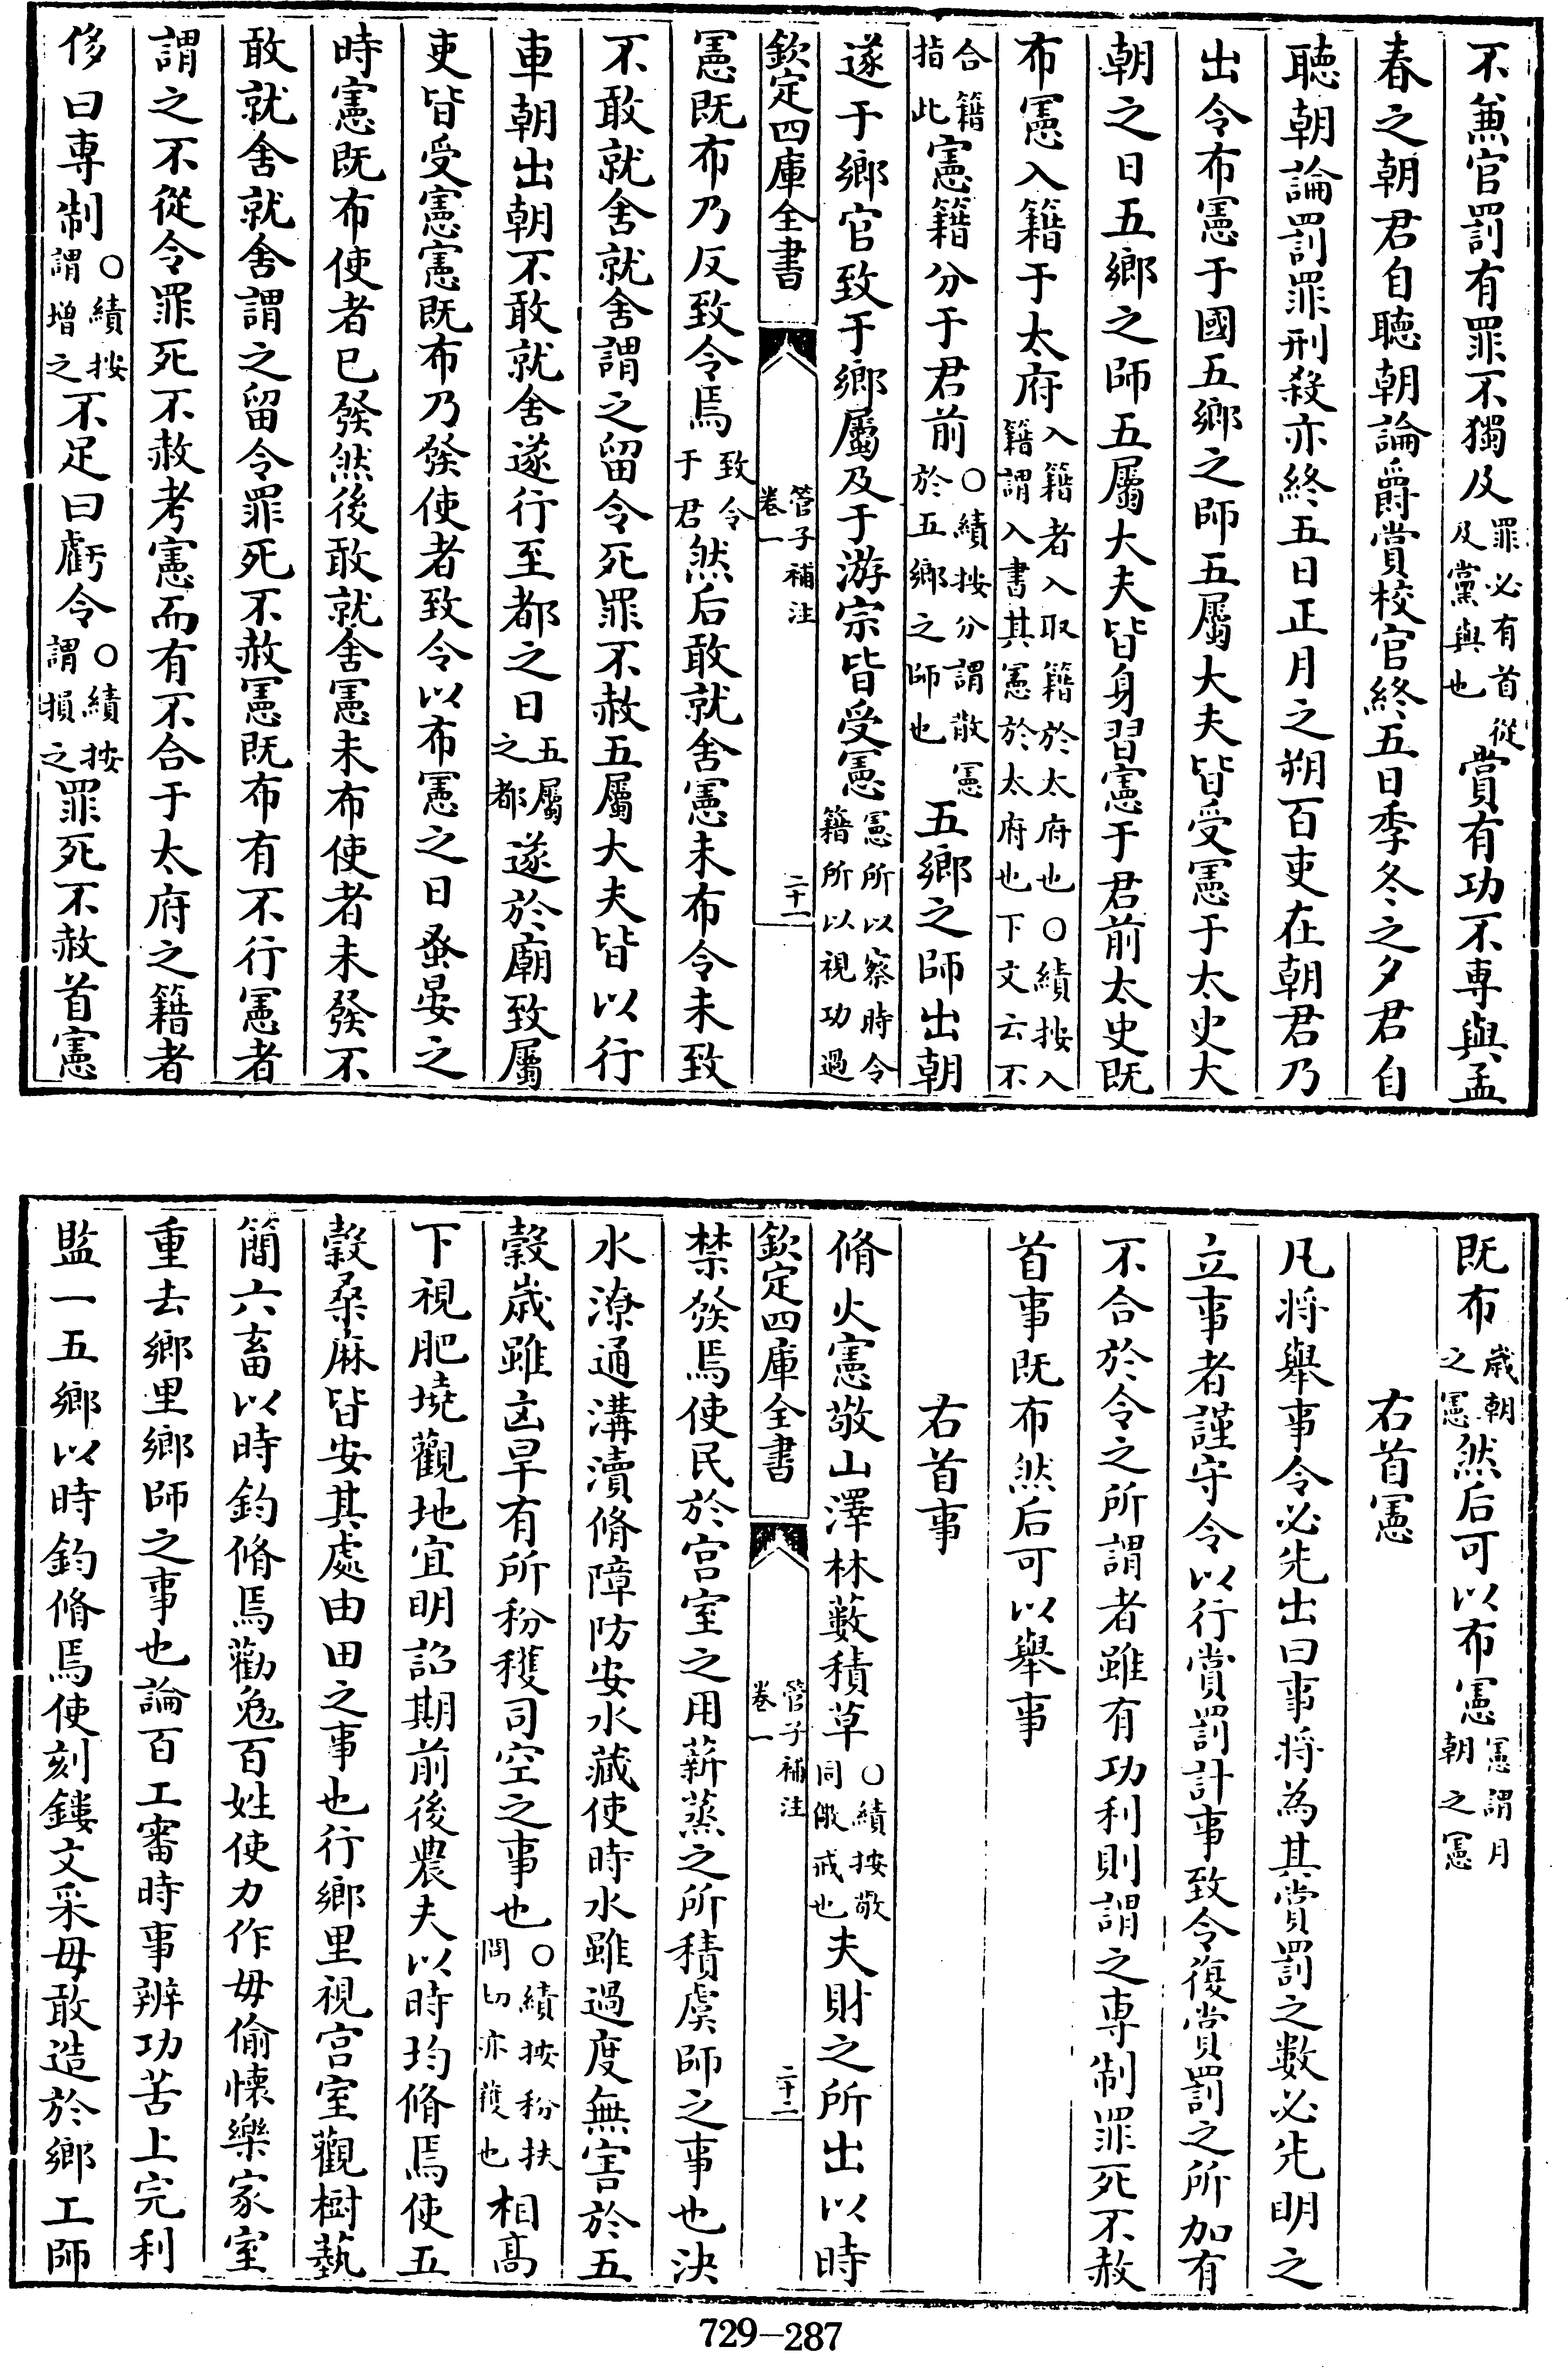 不兼官罰有罪不獨及罪必有首從及黨與也賞有功不専與孟
春之朝君自聽朝論爵賞校官終五日季冬之夕君自
聽朝論罰罪刑殺亦終五日正月之朔百吏在朝君乃
出令布憲于國五鄉之師五屬大夫皆受憲于太史大
朝之日五鄉之師五屬大夫皆身習憲于君前太史既
布憲入籍于太府入籍者入取籍於太府也○績按入籍謂入書其憲於太府也下文云不
合籍指此憲籍分于君前○績按分謂散憲於五鄉之師也五鄉之師出朝
遂于鄉官致于鄉屬及于游宗皆受憲憲所以察時令籍所以視功過
欽定四庫全書 管子補注卷一 二十一
憲既布乃反致令焉致令于君然后敢就舍憲未布令未致
不敢就舍就舍謂之留令死罪不赦五屬大夫皆以行
車朝出朝不敢就舍遂行至都之日五屬之都遂於廟致屬
吏皆受憲憲既布乃發使者致令以布憲之日蚤晏之
時憲既布使者已發然後敢就舍憲未布使者未發不
敢就舍就舍謂之留令罪死不赦憲既布有不行憲者
謂之不從令罪死不赦考憲而有不合于太府之籍者
侈曰専制○績按謂增之不足曰虧令○績按謂損之罪死不赦首憲
既布歳朝之憲然后可以布憲憲謂月朝之憲
右首憲
凡將舉事令必先出曰事將為其賞罰之數必先明之
立事者謹守令以行賞罰計事致令復賞罰之所加有
不合於令之所謂者雖有功利則謂之専制罪死不赦
首事既布然后可以舉事
右首事
脩火憲敬山澤林藪積草○績按敬同儆戒也夫財之所出以時
欽定四庫全書 管子補注卷一 二十二
禁發焉使民於宫室之用薪蒸之所積虞師之事也決
水潦通溝瀆脩障防安水藏使時水雖過度無害於五
穀歳雖凶旱有所秎穫司空之事也○績按秎扶問切亦穫也相髙
下視肥墝觀地宜明詔期前後農夫以時均脩焉使五
穀桑麻皆安其處由田之事也行鄉里視宫室觀樹藝
簡六畜以時鈞脩焉勸勉百姓使力作毋偷懐樂家室
重去鄉里鄉師之事也論百工審時事辨功苦上完利
監一五鄉以時鈞脩焉使刻鏤文采毋敢造於鄉工師
729—287